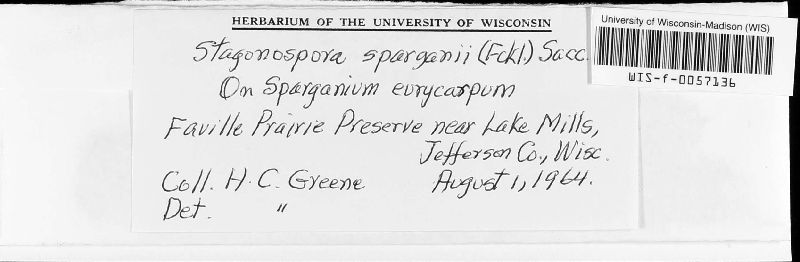 HERBARIUM OF THE UNIVERSITY OF WISCONSIN
Stagonospora sparganii (Fckl.) Sacc.
On Sparganium eurycarpum
Faville Prairie Preserve near Lake Mills,
Jefferson Co., Wisc.
Coll. H. C. Greene August 1, 1964.
Det. "
University of Wisconsin-Madison (WIS)
WIS-f-0057136